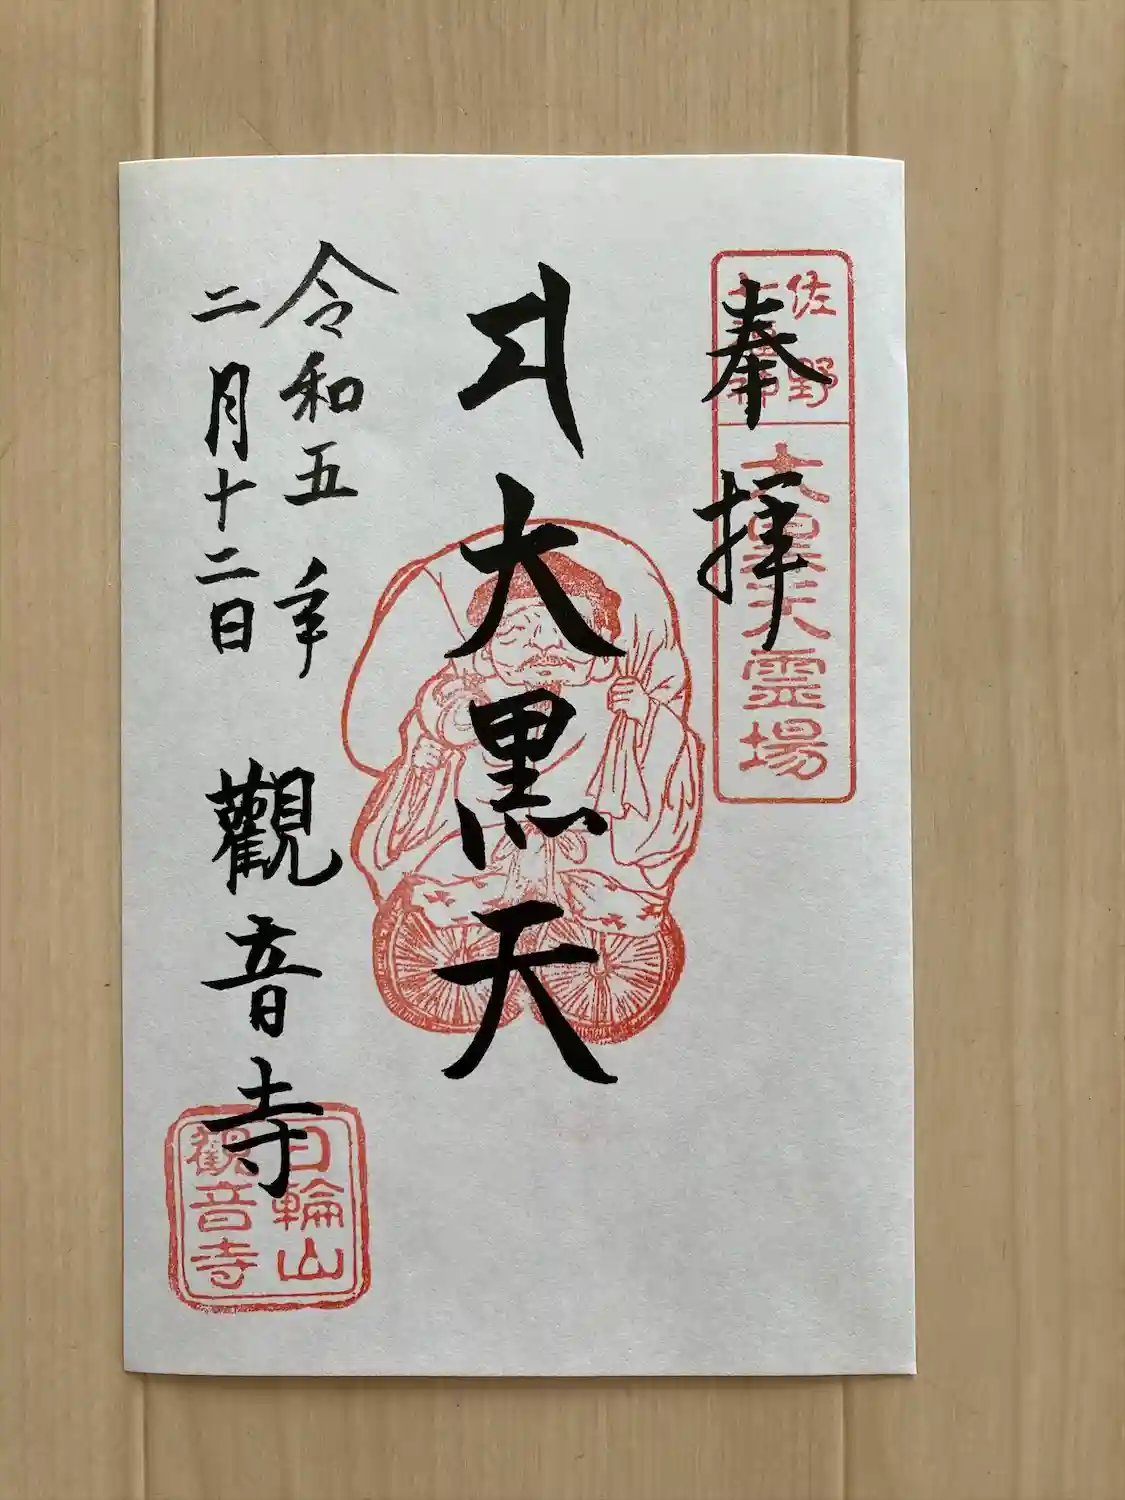 奉拝
佐野
七福神
大黒天霊場
大黒天
令和五年
二月十二日
觀音寺
日輪山
觀音寺